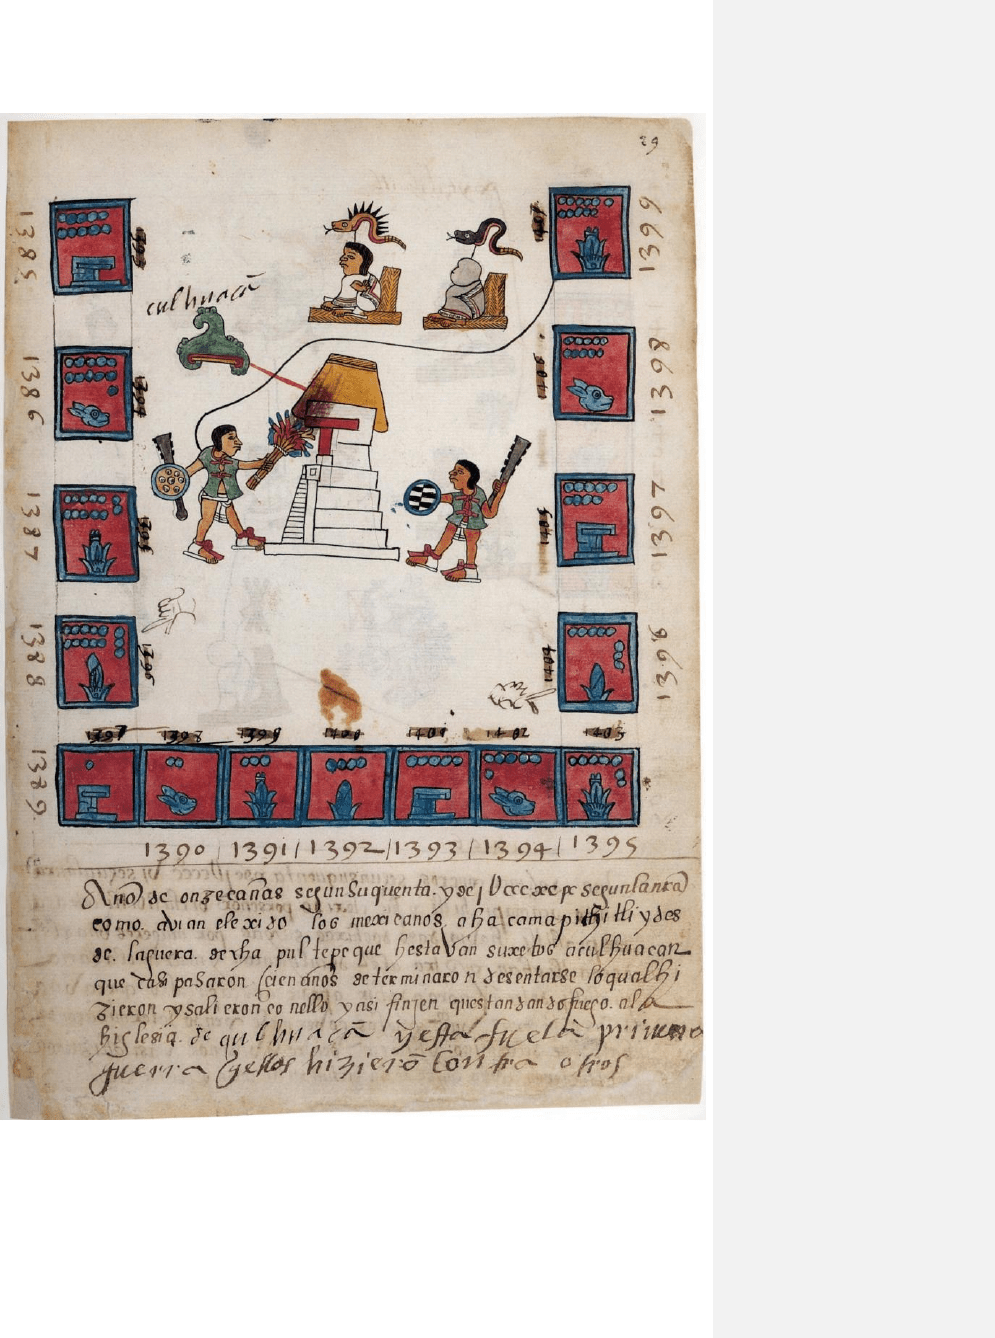 29
1385
1386
1387
1388
1389
culhuacā
1396
1398
1397
1398
1397 1398 1399 1400 1401 1402 1403
1390 1391 1392 1393 1394 1395
Año de onze cañas segun su quenta. y de segun la nra
como. avian elexido los mexicanos, aha camapichitli y des
de. la guera. de cha pultepeque hestavan suxetos a culhuacan
que casi pasaron cien años determinaron desentarse lo qual hi
zieron y salieron co nello y asi finjen questan dando fuego. a la
higlesia. de culhuacā y esta fue la primera
guerra q̄ ellos hizierō contra otros